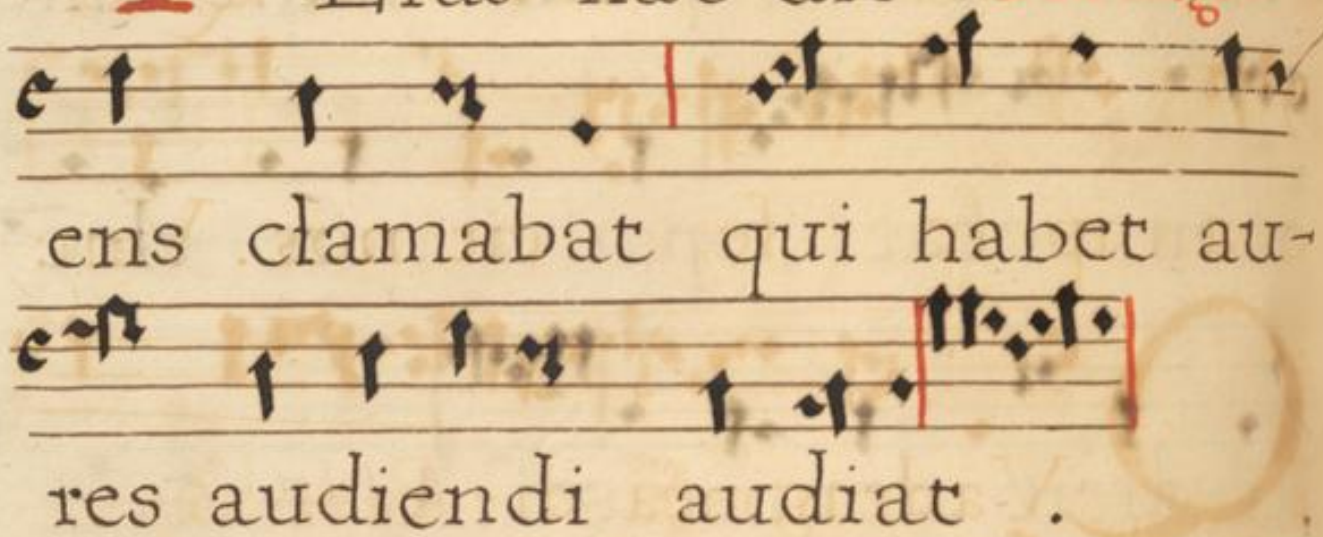 ens clamabat qui habet au-
res audiendi audiat .